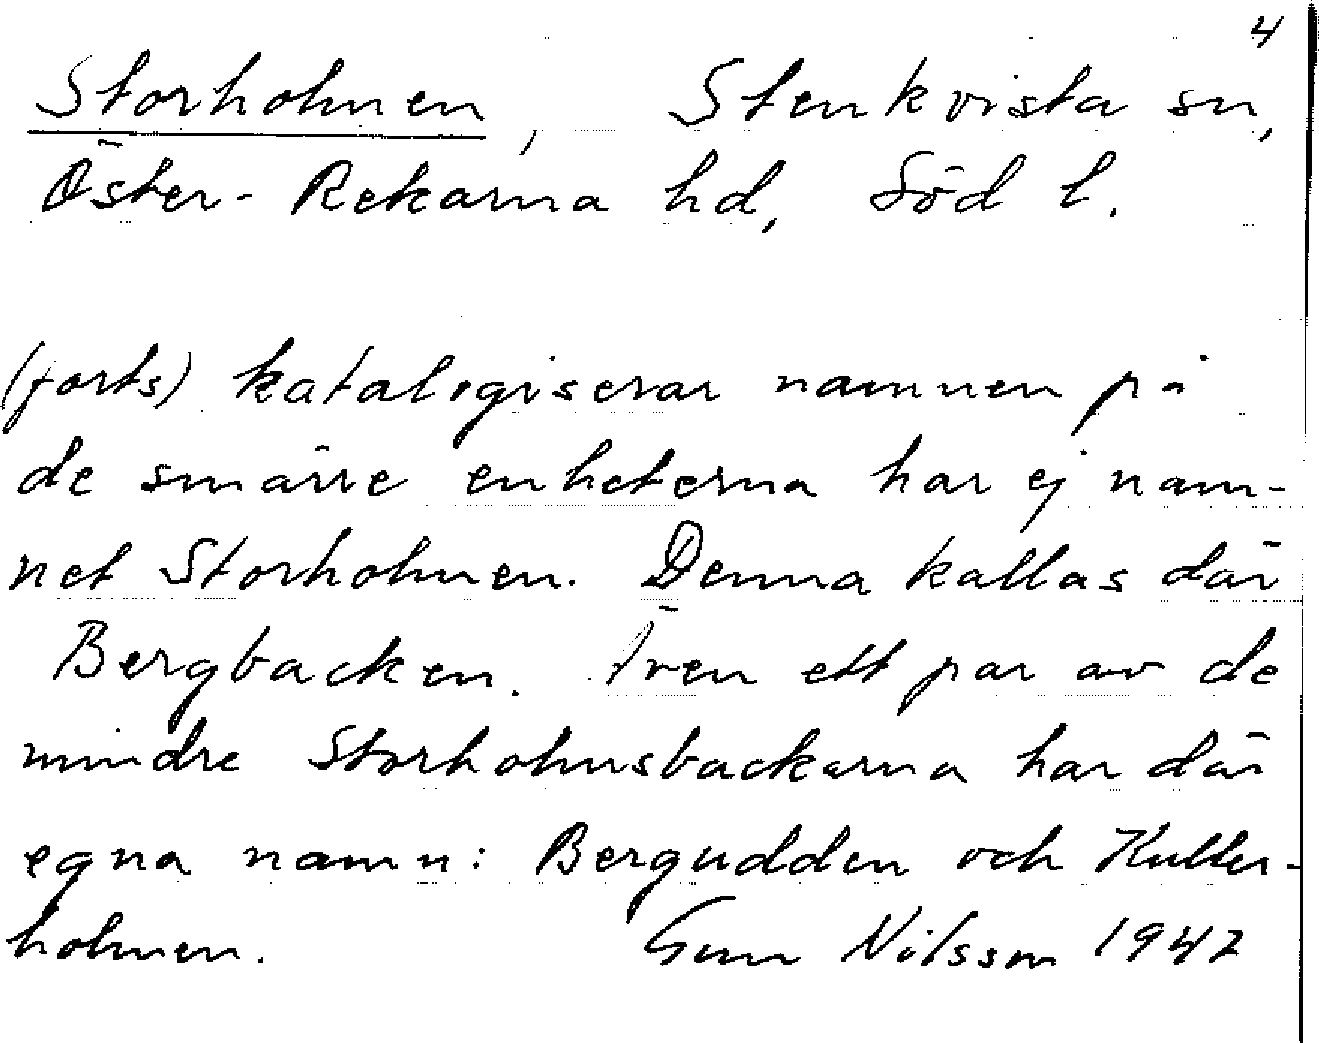 4
Storholmen, Stenkvista sn,
Öster-Rekarna hd, Söd l.
(forts) katalogiserar namnen på
de smärre enheterna har ej nam-
net Storholmen. Denna kallas där
Bergbacken. Även ett par av de
mindre Storholmsbackarna har där
egna namn: Bergudden och Kuller-
holmen. Gun Nilsson 1947